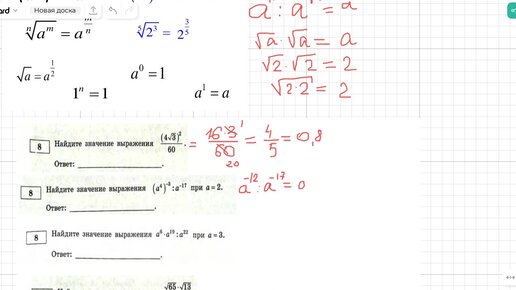 ard Новая доска
ⁿ√aᵐ = a^(m/n) ⁵√2³ = 2^(3/5)
a : a = a
√a · √a = a
√a = a^(1/2) a⁰ = 1
√2 · √2 = 2
1ⁿ = 1 a¹ = a
√2·2 = 2
8 Найдите значение выражения (4√3)²/60 . = 16·3/60 = 4/5 = 0,8
1
20
Ответ:
8 Найдите значение выражения (a⁴)⁻³ : a⁻¹⁷ при a = 2. a⁻¹² : a⁻¹⁷ = 0
Ответ:
8 Найдите значение выражения a⁶ · a¹⁹ : a²² при a = 3.
Ответ:
√65 · √13